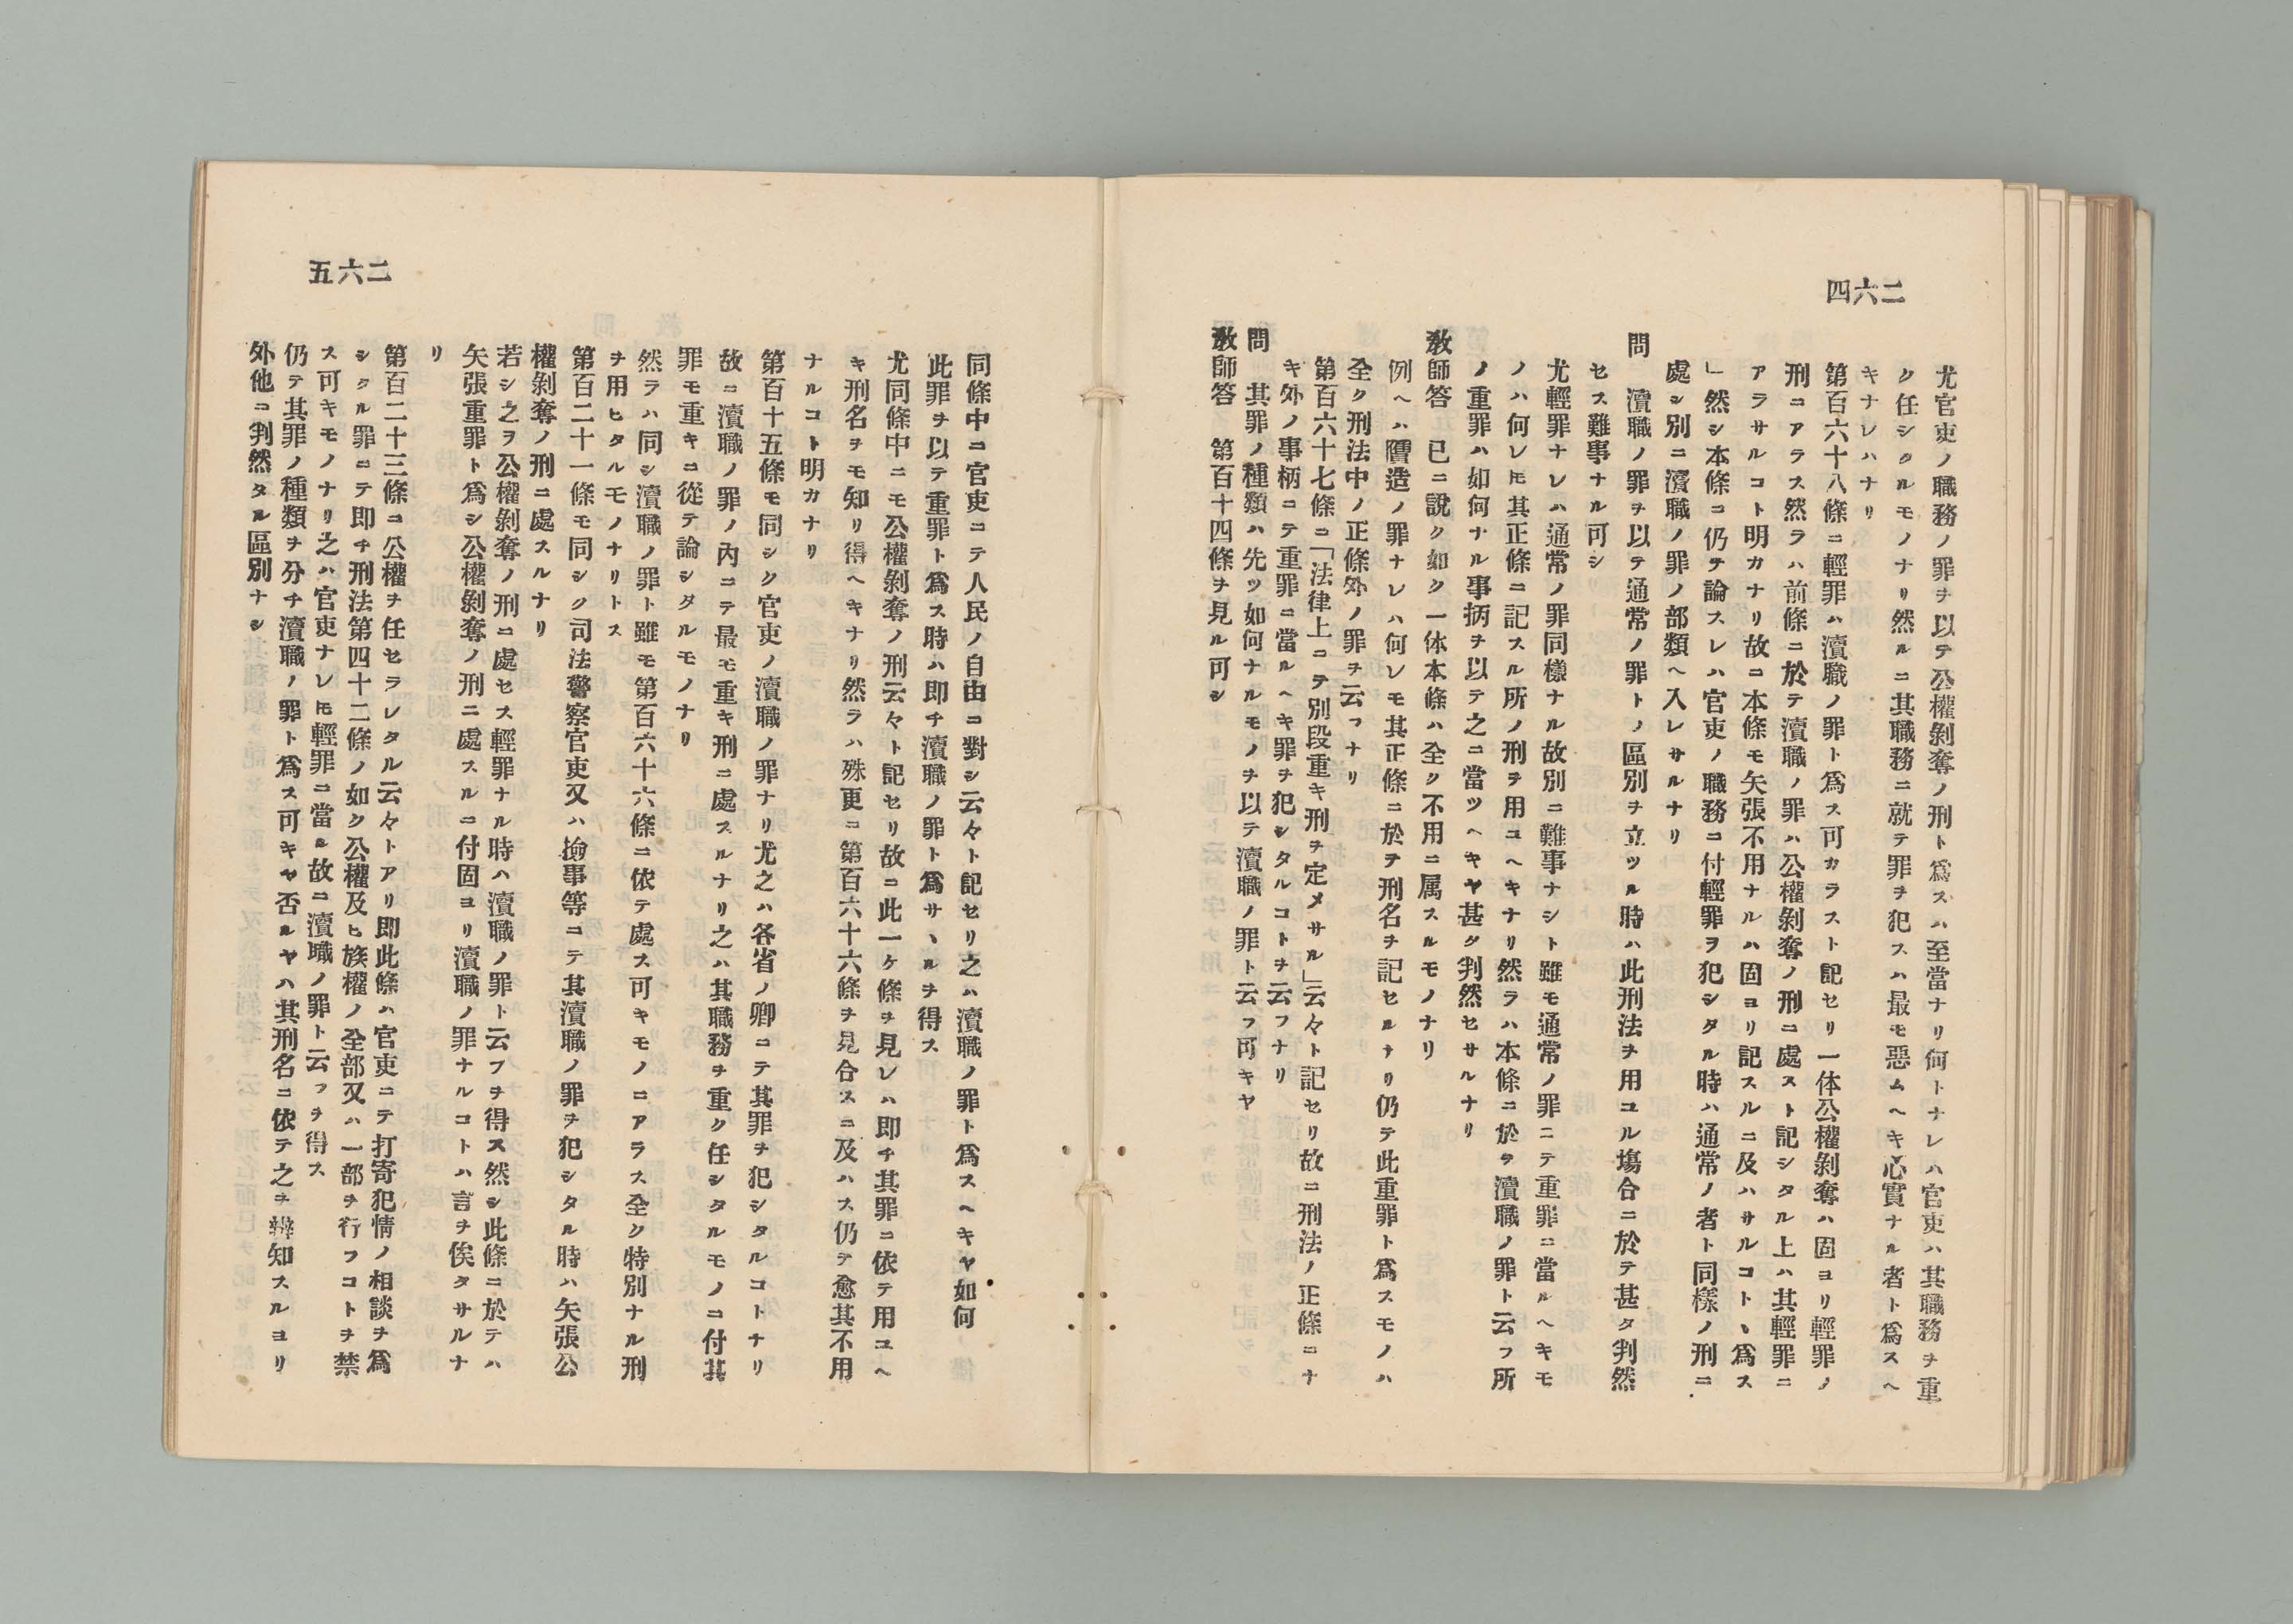 二六四
尤官吏ノ職務ノ罪ヲ以テ公權剝奪ノ刑ト爲スハ至當ナリ何トナレハ官吏ハ其職務ヲ重
ク任シタルモノナリ然ルニ其職務ニ就テ罪ヲ犯スハ最モ惡ムヘキ心實ナル者ト爲スヘ
キナレハナリ
第百六十八條ニ輕罪ハ瀆職ノ罪ト爲ス可カラスト記セリ一体公權剝奪ハ固ヨリ輕罪ノ
刑ニアラス然ラハ前條ニ於テ瀆職ノ罪ハ公權剝奪ノ刑ニ處スト記シタル上ハ其輕罪ニ
アラサルコト明カナリ故ニ本條モ矢張不用ナルハ固ヨリ記スルニ及ハサルコトヽ爲ス
」然シ本條ニ仍テ論スレハ官吏ノ職務ニ付輕罪ヲ犯シタル時ハ通常ノ者ト同樣ノ刑ニ
處シ別ニ瀆職ノ罪ノ部類ヘ入レサルナリ
問 瀆職ノ罪ヲ以テ通常ノ罪トノ區別ヲ立ツル時ハ此刑法ヲ用ユル塲合ニ於テ甚タ判然
セス難事ナル可シ
尤輕罪ナレハ通常ノ罪同樣ナル故別ニ難事ナシト雖モ通常ノ罪ニテ重罪ニ當ルヘキモ
ノハ何レ𪜈其正條ニ記スル所ノ刑ヲ用ユヘキナリ然ラハ本條ニ於テ瀆職ノ罪ト云フ所
ノ重罪ハ如何ナル事抦ヲ以テ之ニ當ツヘキヤ甚タ判然セサルナリ
敎師答 已ニ說ク如ク一体本條ハ全ク不用ニ属スルモノナリ
例ヘハ贋造ノ罪ナレハ何レモ其正條ニ於テ刑名ヲ記セルナリ仍テ此重罪ト爲スモノハ
全ク刑法中ノ正條外ノ罪ヲ云フナリ
第百六十七條ニ「法律上ニテ別段重キ刑ヲ定メサル」云々ト記セリ故ニ刑法ノ正條ニナ
キ外ノ事柄ニテ重罪ニ當ルヘキ罪ヲ犯シタルコトヲ云フナリ
問 其罪ノ種類ハ先ツ如何ナルモノヲ以テ瀆職ノ罪ト云フ可キヤ
敎師答 第百十四條ヲ見ル可シ
二六五
同條中ニ官吏ニテ人民ノ自由ニ對シ云々ト記セリ之ハ瀆職ノ罪ト爲スヘキヤ如何
此罪ヲ以テ重罪ト爲ス時ハ即チ瀆職ノ罪ト爲サヽルヲ得ス
尤同條中ニモ公權剝奪ノ刑云々ト記セリ故ニ此一ケ條ヲ見レハ即チ其罪ニ依テ用ユヘ
キ刑名ヲモ知リ得ヘキナリ然ラハ殊更ニ第百六十六條ヲ見合スニ及ハス仍テ愈其不用
ナルコト明カナリ
第百十五條モ同シク官吏ノ瀆職ノ罪ナリ尤之ハ各省ノ卿ニテ其罪ヲ犯シタルコトナリ
故ニ瀆職ノ罪ノ內ニテ最モ重キ刑ニ處スルナリ之ハ其職務ヲ重ク任シタルモノニ付其
罪モ重キニ從テ論シタルモノナリ
然ラハ同シ瀆職ノ罪ト雖モ第百六十六條ニ依テ處ス可キモノニアラス全ク特別ナル刑
ヲ用ヒタルモノナリトス
第百二十一條モ同シク司法警察官吏又ハ撿事等ニテ其瀆職ノ罪ヲ犯シタル時ハ矢張公
權剝奪ノ刑ニ處スルナリ
若シ之ヲ公權剝奪ノ刑ニ處セス輕罪ナル時ハ瀆職ノ罪ト云フヲ得ス然シ此條ニ於テハ
矢張重罪ト爲シ公權剝奪ノ刑ニ處スルニ付固ヨリ瀆職ノ罪ナルコトハ言ヲ俟タサルナ
リ
第百二十三條ニ公權ヲ任セラレタル云々トアリ即此條ハ官吏ニテ打寄犯情ノ相談ヲ爲
シタル罪ニテ即チ刑法第四十二條ノ如ク公權及ヒ族權ノ全部又ハ一部ヲ行フコトヲ禁
ス可キモノナリ之ハ官吏ナレ𪜈輕罪ニ當ル故ニ瀆職ノ罪ト云フヲ得ス
仍テ其罪ノ種類ヲ分チ瀆職ノ罪ト爲ス可キヤ否ルヤハ其刑名ニ依テ之ヲ辨知スルヨリ
外他ニ判然タル區別ナシ